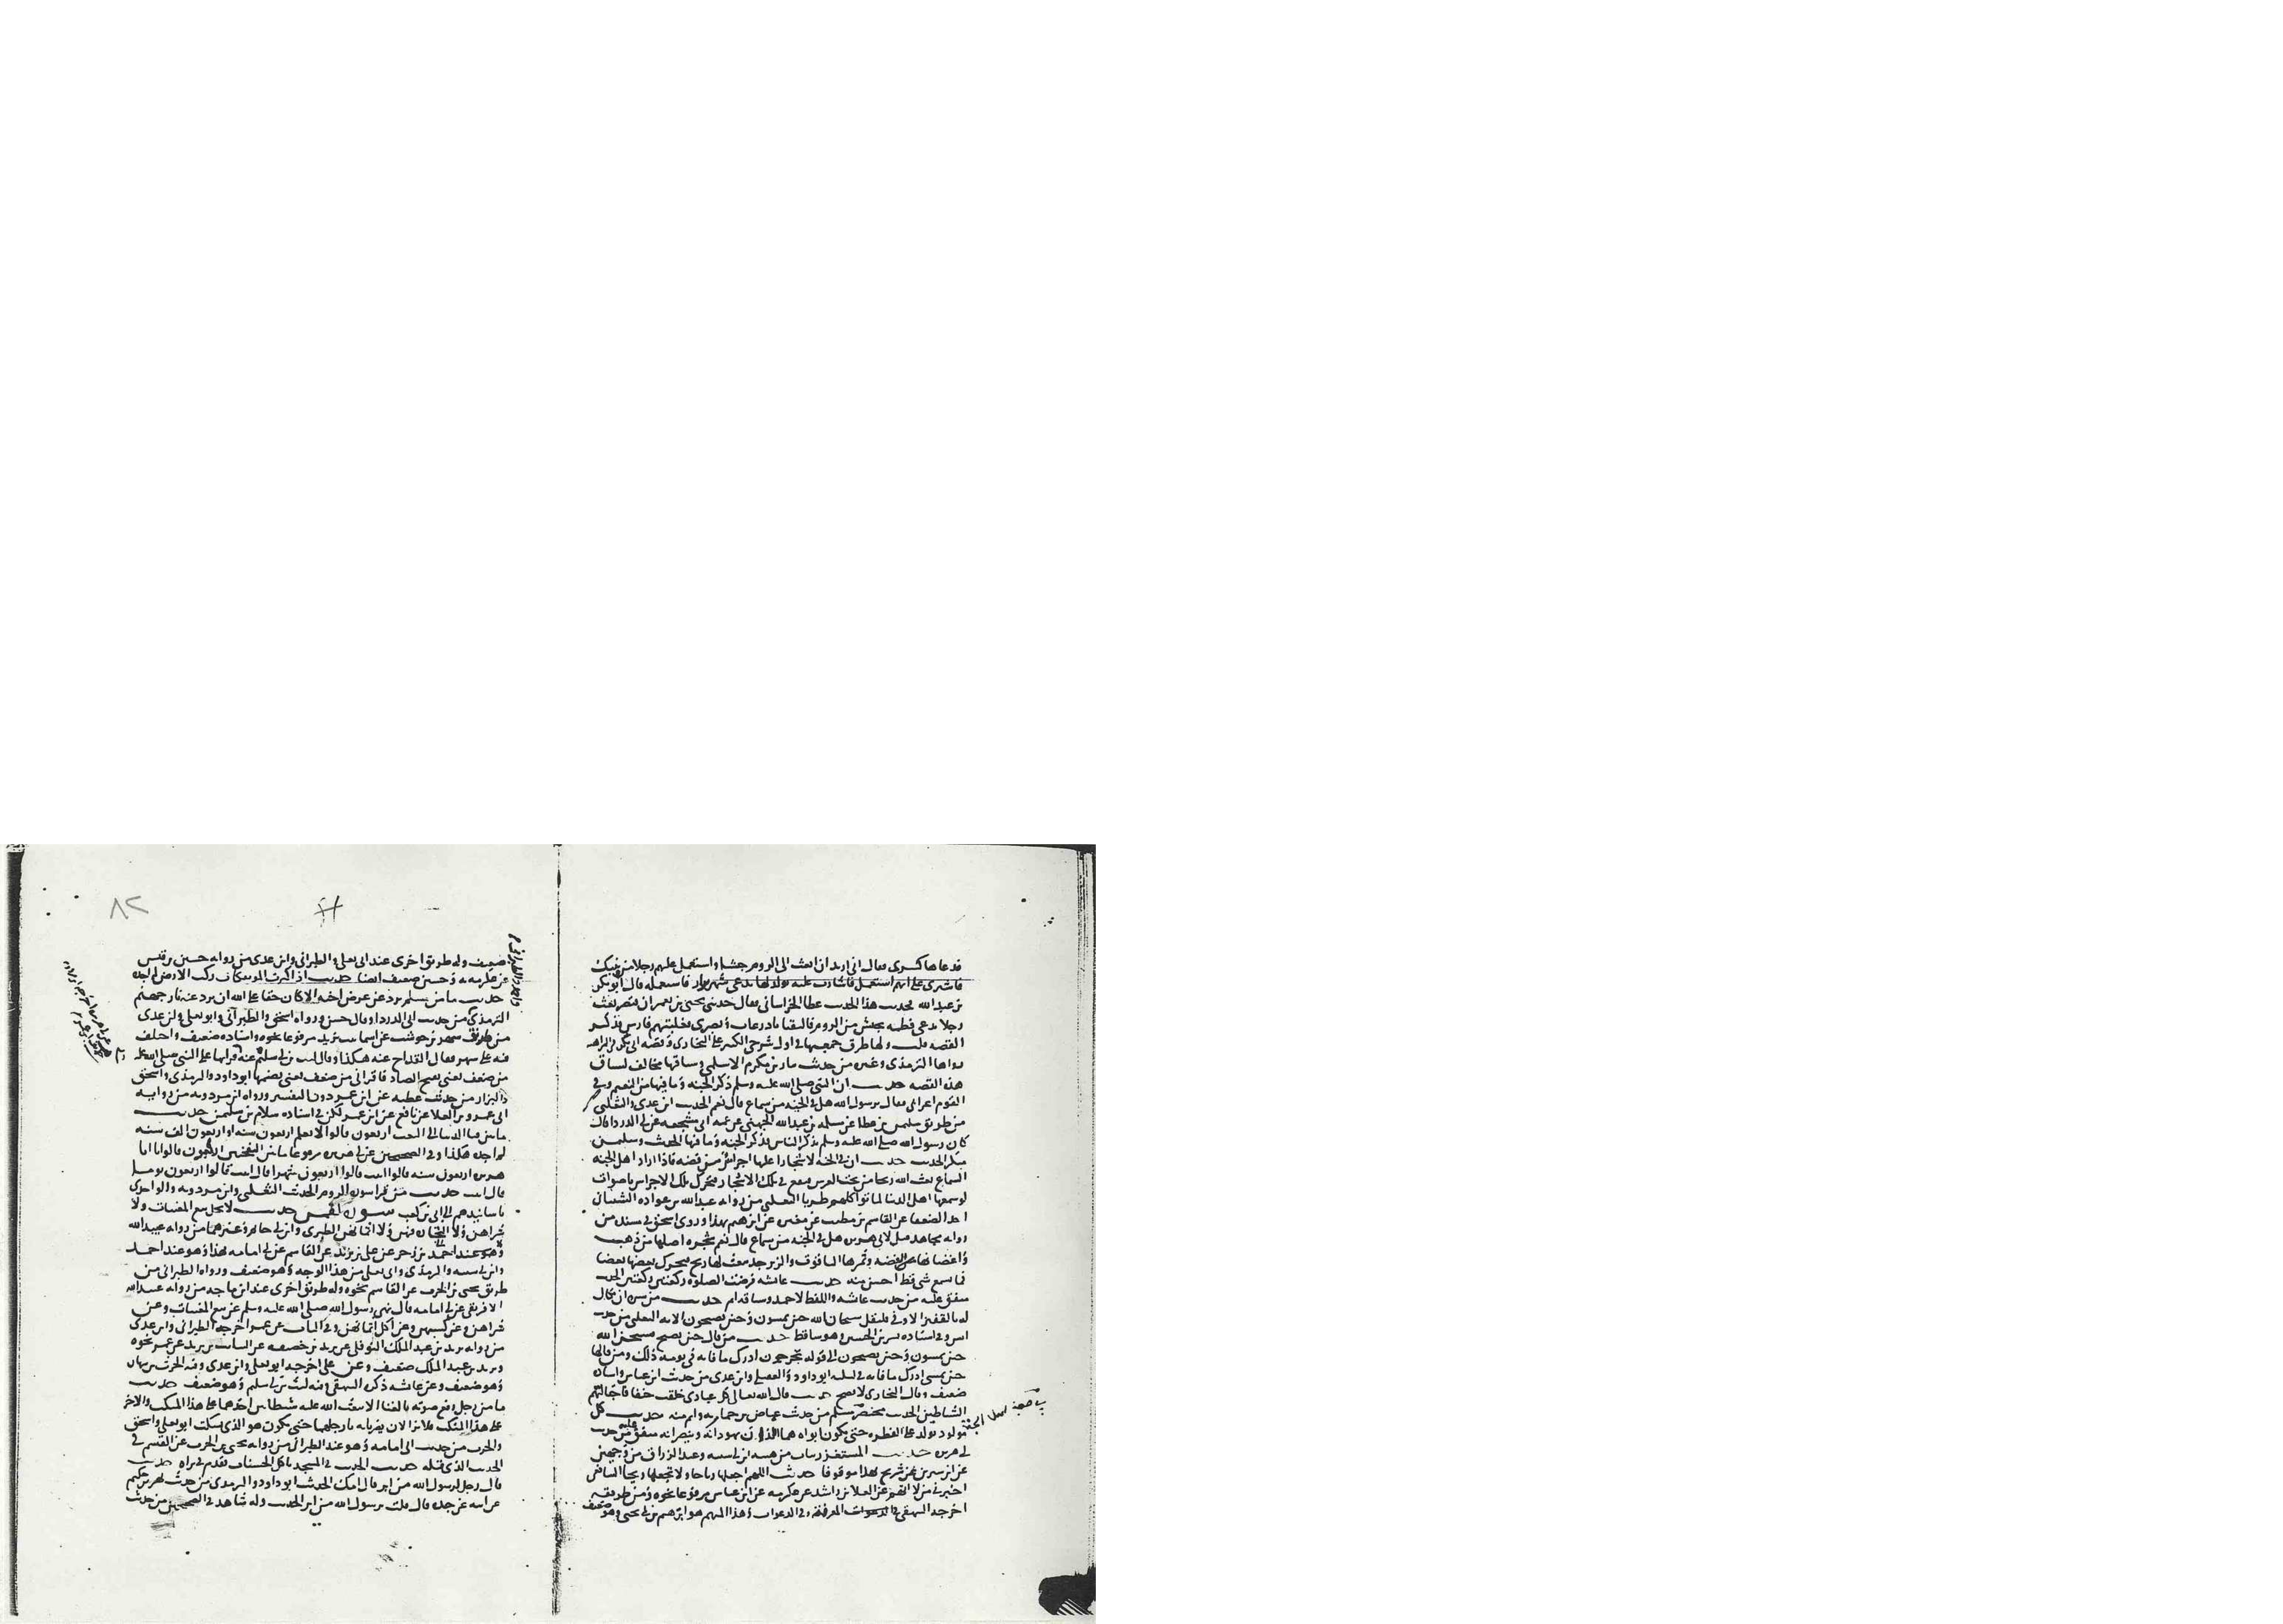 فدعاها كسرى فقال اني اريد ان ابعث الى الروم جيشا واستعمل عليهم رجلا من بنيك
فاشيري علي ايهم استعمل فاشارت عليه بولد لها يدعى شهريراز فاستعمله قال ابو بكر
بن عبد الله فحدثت هذا الحديث عطا الخراساني فقال حدثني يحيى بن يعمر ان قيصر بعث
رجلا يدعى قطمه بجيش من الروم فالتقيا باذرعات وبصرى فغلبتهم فارس فذكر
القصه قلت ولها طرق جمعتها في اول شرحي الكبير على البخاري وقصة ابي بكر في المراهنه
رواها الترمذي وغيره من حديث نيار بن مكرم الاسلمي وساقها مخالف لسياق
هذه القصه حديث ان النبي صلى الله عليه وسلم ذكر الجنه وما فيها من النعيم وفي
القوم اعرابي فقال يرسول الله هل في الجنه من سماع قال نعم الحديث ابن عدي والثعلبي
من طريق سليمن بن عطا عن مسلمه بن عبد الله الجهني عن عمه ابي مشجعه عن ابي الدردا قال
كان رسول الله صلى الله عليه وسلم يذكر الناس فذكر الجنه وما فيها الحديث وسليمن
منكر الحديث حديث ان في الجنه لاشجارا عليها اجراس من فضه فاذا اراد اهل الجنه
السماع بعث الله ريحا من تحت العرش فتقع في تلك الاشجار فتحرك تلك الاجراس باصوات
لو سمعها اهل الدنيا لماتوا كلهم طربا الثعلبي من روايه عبد الله بن عراده الشيباني
احد الضعفا عن القاسم بن مطيب عن مغيره عن ابرهيم بهذا وروى اسحق في مسنده من
روايه مجاهد قيل لابي هريره هل في الجنه من سماع قال نعم شجره اصلها من ذهب
واغصانها من الفضه وثمرها الياقوت والزبرجد يبعث لها ريح فيحرك بعضها بعضا
فما سمع شي قط احسن منه حديث عائشه فرضت الصلوه ركعتين ركعتين الحديث
متفق عليه من حديث عائشه واللفظ لاحمد وساقه اتم حديث من سره ان يكال
له بالقفيز الاوفى فليقل سبحان الله حين تمسون وحين تصبحون الايه الثعلبي من حديث
انس وفي اسناده بشر بن الحسين وهو ساقط حديث من قال حين يصبح فسبحن الله
حين تمسون وحين تصبحون الى قوله تخرجون ادرك ما فاته في يومه ذلك ومن قالها
حين يمسي ادرك ما فاته في ليلته ابو داود والعقيلي وابن عدي من حديث ابن عباس واسناده
ضعيف وقال البخاري لا يصح حديث قال الله تعالى كل عبادي خلقت حنفا فاجتالتهم
الشياطين الحديث مختصر مسلم من حديث عياض بن حمار به واتم منه حديث كل
مولود يولد على الفطره حتى يكون ابواه هما اللذان يهودانه وينصرانه متفق عليه من حديث
ابي هريره حديث المستغزر يثاب من هبته ابن ابي شيبه وعبد الرزاق من وجهين
عن ابن سيرين عن شريح بهذا موقوفا حديث اللهم اجعلها رياحا ولا تجعلها ريحا الشافعي
اخبرني من لا اتهم عن العلا بن راشد عن عكرمه عن ابن عباس مرفوعا نحوه ومن طريقه
اخرجه البيهقي في المعرفه وفي الدعوات وهذا المبهم هو ابرهيم بن ابي يحيى وهو ضعيف
ضعيف وله طريق اخرى عند ابي يعلى والطبراني وابن عدي من روايه حسين بن قيس
عن عكرمه به وحسين ضعيف ايضا حديث اذا كثرت المؤتفكات زكت الارض لم اجده
حديث ما من مسلم يرد عن عرض اخيه الا كان حقا على الله ان يرد عنه نار جهنم
الترمذي من حديث ابي الدردا وقال حسن ورواه اسحق والطبراني وابو يعلى وابن عدي
من طريق شهر بن حوشب عن اسما بنت يزيد مرفوعا نحوه واسناده ضعيف واختلف
فيه على شهر فقال القداح عنه هكذا وقال ليث بن ابي سليم عنه قراتها على النبي صلى الله عليه
من ضعف يعني بفتح الضاد فاقراني من ضعف يعني بضمها ابو داود والترمذي واسحق
والبزار من حديث عطيه عن ابن عمر دون التفسير ورواه ابن مردويه من روايه
ابي عمرو بن العلا عن نافع عن ابن عمر لكن في اسناده سلام بن سليمن حديث
ما بين فنا الدنيا الى البعث اربعون قالوا لا يعلم اربعون سنه او اربعون الف سنه
لم اجده هكذا وفي الصحيحين عن ابي هريره مرفوعا ما بين النفختين اربعون قالوا يا ابا
هريره اربعون سنه قال ابيت قالوا اربعون شهرا قال ابيت قالوا اربعون يوما
قال ابيت حديث من قرا سورة الروم الحديث الثعلبي وابن مردويه والواحدي
باسانيدهم الى ابي بن كعب سورة لقمن حديث لا يحل بيع المغنيات ولا
شراهن ولا التجارة فيهن ولا اثمانهن الطبري وابن ابي حاتم وغيرهما من روايه عبيد الله
بن زحر عن علي بن يزيد عن القاسم عن ابي امامه بهذا وهو عند احمد
وابن ابي شيبه والترمذي وابي يعلى من هذا الوجه وهو ضعيف ورواه الطبراني من
طريق يحيى بن الحرث عن القاسم نحوه وله طريق اخرى عند ابن ماجه من روايه عبيد الله
الافريقي عن ابي امامه قال نهى رسول الله صلى الله عليه وسلم عن بيع المغنيات وعن
شراهن وعن كسبهن وعن اكل اثمانهن وفي الباب عن عمر اخرجه الطبراني وابن عدي
من روايه يزيد بن عبد الملك النوفلي عن يزيد بن خصيفه عن السائب بن يزيد عن عمر نحوه
ويزيد بن عبد الملك ضعيف وعن علي اخرجه ابو يعلى وابن عدي وفيه الحرث بن نبهان
وهو ضعيف وعن عائشه ذكره البيهقي وفيه ليث بن ابي سليم وهو ضعيف حديث
ما من رجل رفع صوته بالغنا الا بعث الله عليه شيطانين احدهما على هذا المنكب والاخر
على هذا المنكب فلا يزالان يضربانه بارجلهما حتى يكون هو الذي يسكت ابو يعلى واسحق
والحرث من حديث ابي امامه وهو عند الطبراني من روايه يحيى بن الحرث عن القسم في
الحديث الذي قبله حديث الحديث في المسجد ياكل الحسنات تقدم في براه حديث
قال رجل يرسول الله من ابر قال امك الحديث ابو داود والترمذي من حديث بهز بن حكيم
عن ابيه عن جده قال قلت يرسول الله من ابر الحديث وله شاهد في الصحيحين من حديث